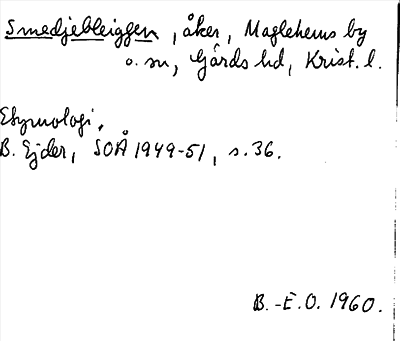 Smedjebleiggen, åker, Maglehems by
o. sn, Gärds hd, Krist. l.
Etymologi.
B. Ejder, SOÅ 1949-51, s. 36.
B.-E.O. 1960.